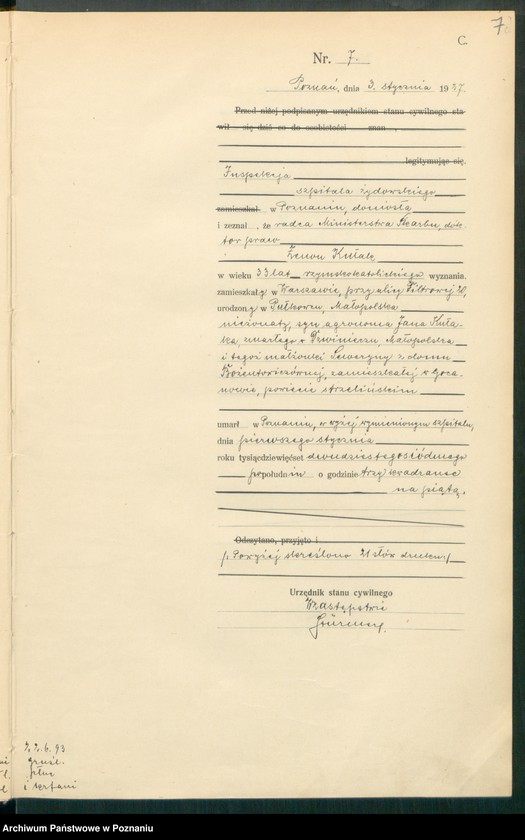 7
C.
Nr. 7.
Poznań, dnia 3. stycznia 1937.
Przed niżej podpisanym urzędnikiem stanu cywilnego sta-
wił się dziś co do osobistości znan ,
legitymując się.
Inspekcja
szpitala żydowskiego
zamieszkał w Poznaniu, doniosła
i zeznał , że radca Ministerstwa Skarbu, dok-
tor praw
Zenon Kułak
w wieku 33 lat rzymskokatolickiego wyznania.
zamieszkały w Warszawie, przy ulicy Filtrowej
urodzony w Małopolska
nieżonaty, syn agronoma Jana Kuła-
ka, umarłego w Dzwiniaczu, Małopolska
i tegoż małżonki Seweryny z domu
zamieszkałej w
powiecie strzelińskim
umarł w Poznaniu, w wyżej wymienionym szpitalu,
dnia pierwszego stycznia
roku tysiącdziewięćset dwudziestegosiódmego
po południu o godzinie trzy kwadranse
na piątą.
Odczytano, przyjęto i
/. Powyżej skreślono 21 słów drukiem /
Urzędnik stanu cywilnego
W zastępstwie
i
Archiwum Państwowe w Poznaniu